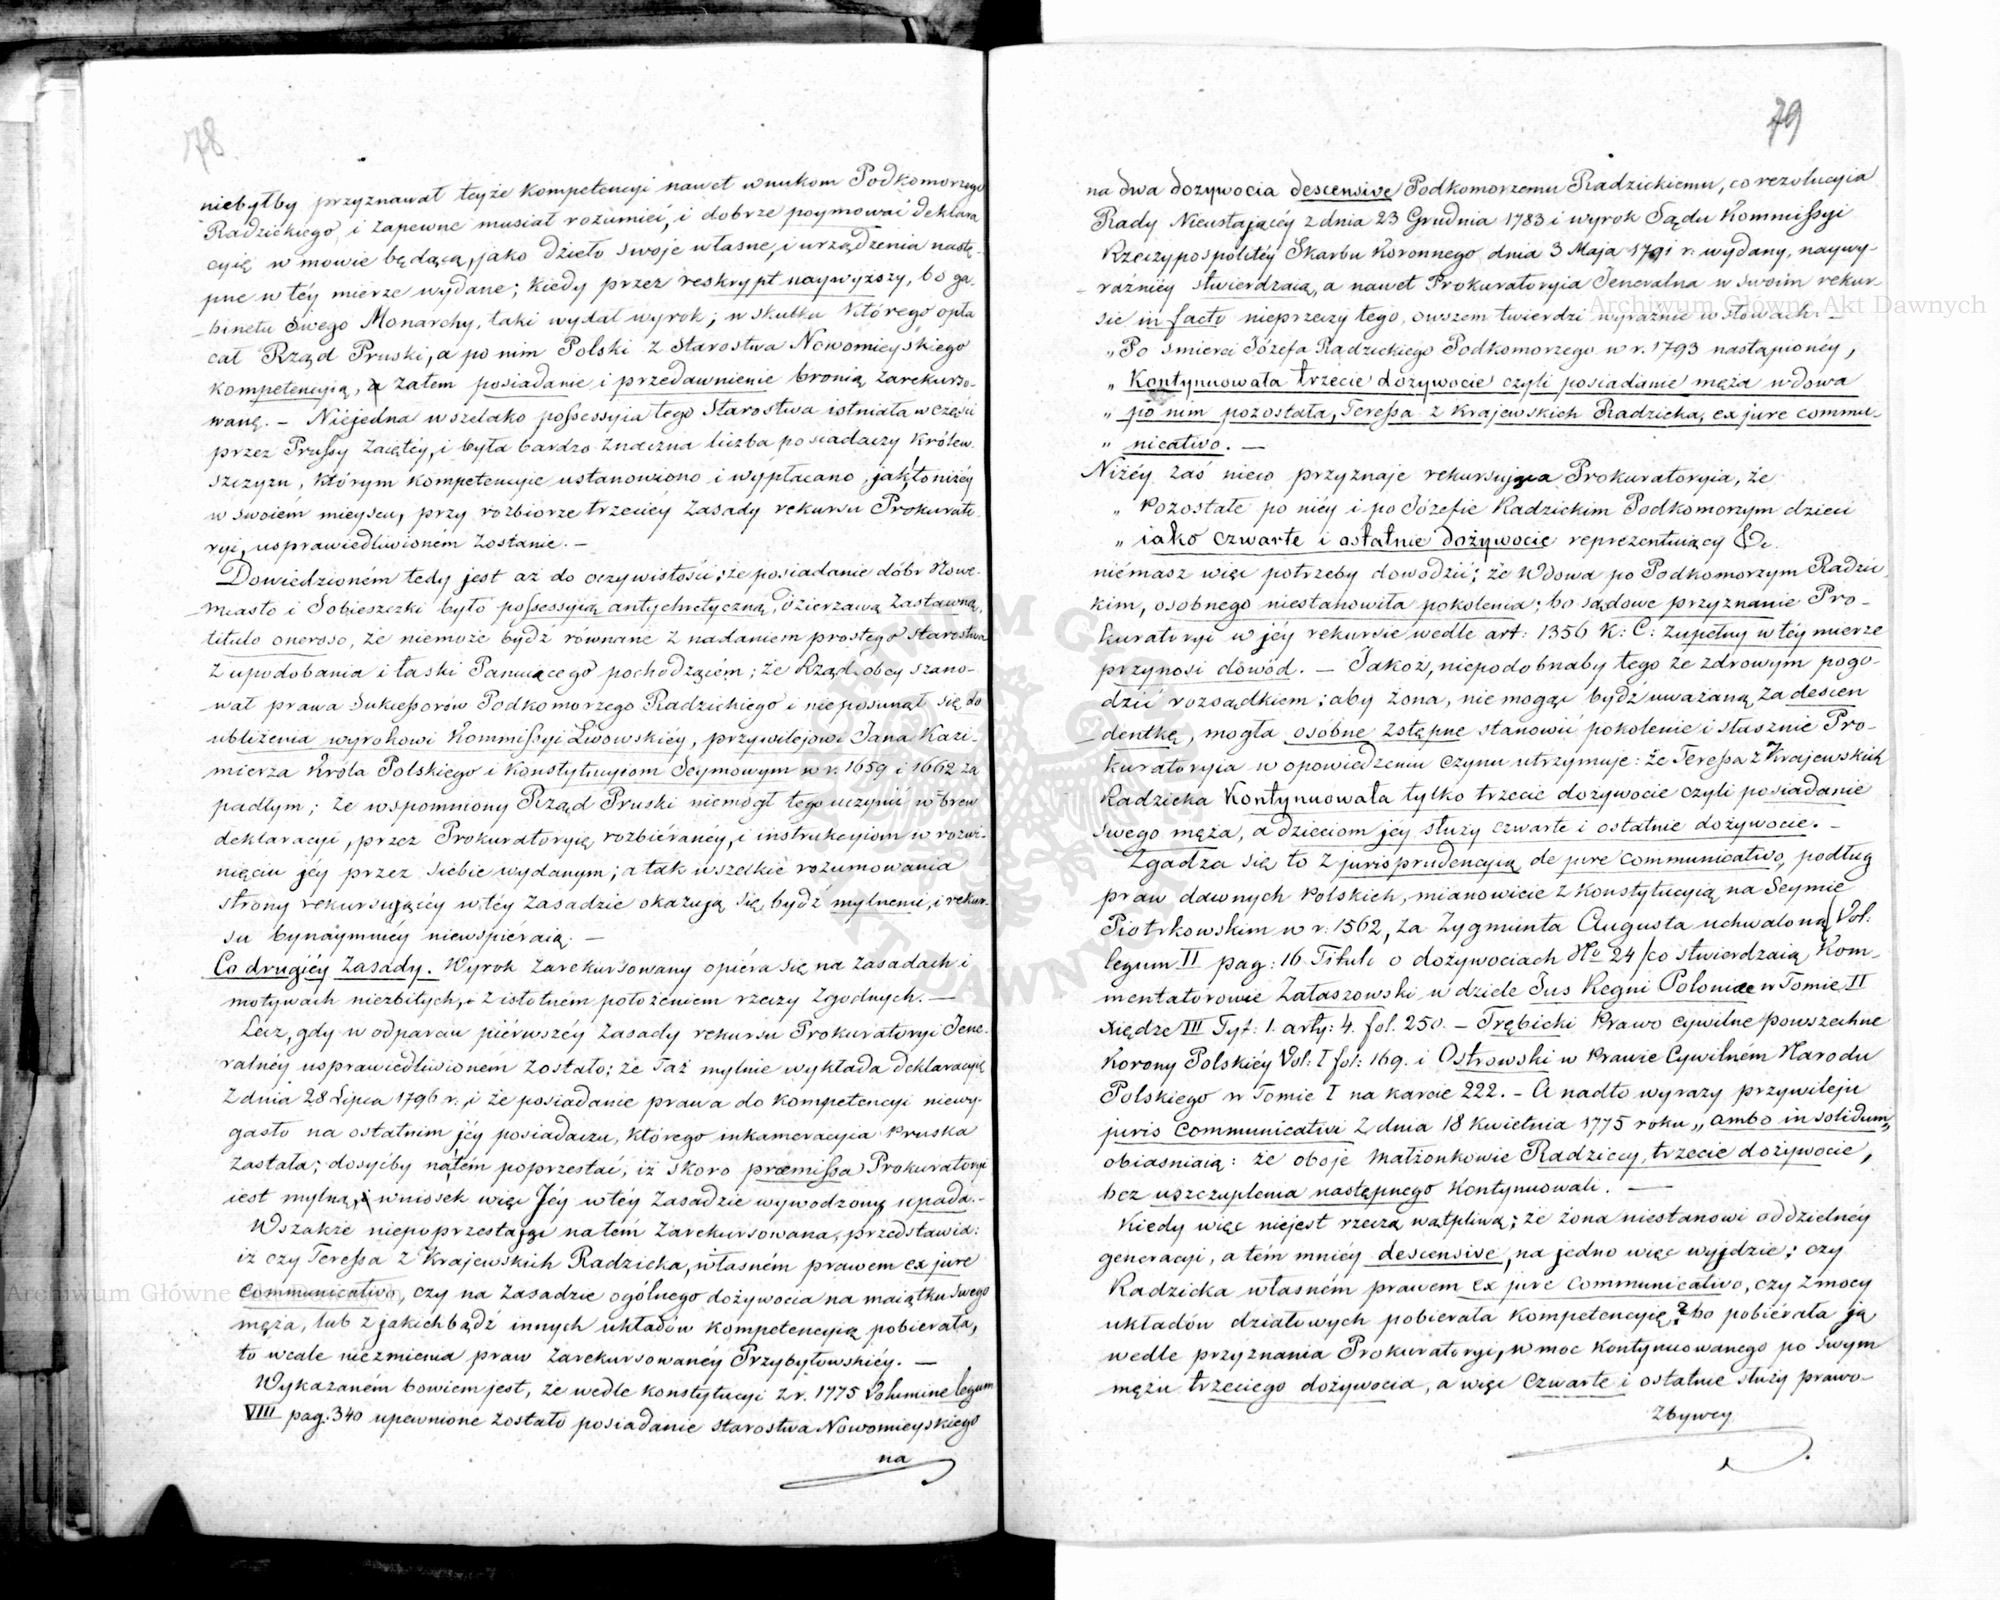 78
niebyłby przyznawał teyże kompetencyi nawet wnukom Podkomorzego
Radzickiego, i zapewne musiał rozumieć, i dobrze poymować deklara
cyię w mowie będącą, jako dzieło swoje własne, i urządzenia nastę-
pne w téy mierze wydane; kiedy przez reskrypt naywyższy, bo ga-
binetu Swego Monarchy, taki wydał wyrok; w skutku którego opła
cał Rząd Pruski, a po nim Polski z Starostwa Nowomieyskiego
kompetencyią, a zatem posiadanie i przedawnienie bronią zarekurso-
waną. – Niejedna wszelako possessyia tego Starostwa istniała w części
przez Prussy zaiętéy, i była bardzo znaczna liczba posiadaczy królew-
szczyzn, którym kompetencyie ustanowiono i wypłacano, jak to niżéy
w swoiém mieyscu, przy rozbiorze trzeciéy zasady rekursu Prokurato
ryi, usprawiedliwioném zostanie. –
Dowiedzioném tedy jest aż do oczywistości; że posiadanie dóbr Nowe-
miasto i Sobieszczki było possessyią antychretyczną, dzierżawą zastawną,
titulo oneroso, że niemoże bydź równane z nadaniem prostego Starostwa
z upodobania i łaski Panuiącego pochodzącém; że Rząd obcy szano-
wał prawa Sukcessorów Podkomorzego Radzickiego i nieposunął się do
ubliżenia wyrokowi Kommissyi Lwowskiéy, przywilejowi Jana Kazi-
mierza Króla Polskiego i Konstytucyiom Seymowym w r. 1659 i 1662 za
padłym; że wspomniony Rząd Pruski niemógł tego uczynić wbrew
deklaracyi, przez Prokuratoryią rozbiéranéy, i instrukcyiom w rozwi-
nięciu jéy przez siebie wydanym; a tak wszelkie rozumowania
strony rekursującéy w téy zasadzie okazują się bydź mylnemi, i rekur-
su bynaymniéy niewspieraią. –
Co drugiéy zasady. Wyrok zarekursowany opiéra się na zasadach i
motywach niezbitych, i z istotném położeniem rzeczy zgodnych. –
Lecz, gdy w odparciu piérwszéy zasady rekursu Prokuratoryi Jene-
ralnéy usprawiedliwioném zostało; że taż mylnie wykłada deklaracyią
z dnia 28 Lipca 1796 r., i że posiadanie prawa do kompetencyi niewy-
gasło na ostatnim jéy posiadaczu, którego inkameracyia Pruska
zastała; dosyćby na tém poprzestać, iż skoro præmissa Prokuratoryi
iest mylną, wniosek więc Jéy w téy zasadzie wywodzony upada. –
Wszakże niepoprzestając na tém zarekursowana, przedstawia:
iż czy Teressa z Krajewskich Radzicka, własném prawem ex jure
communicativo, czy na zasadzie ogólnego dożywocia na maiątku swego
męża, lub z jakichbądź innych układów kompetencyią pobierała,
to wcale niezmienia praw zarekursowanéy Przybyłowskiéy. –
Wykazaném bowiem jest, że wedle konstytucyi z r. 1775 Volumine legum
VIII pag: 340 upewnione zostało posiadanie starostwa Nowomieyskiego
na
79
na dwa dożywocia descensive Podkomorzemu Radzickiemu, co rezolucyia
Rady Nieustającéy z dnia 23 Grudnia 1783 i wyrok Sądu Kommissyi
Rzeczypospolitéy Skarbu Koronnego dnia 3 Maja 1791 r. wydany, naywy-
raźniéy stwierdzaią, a nawet Prokuratoryia Jeneralna w swoim rekur-
sie in facto nieprzeczy tego, owszem twierdzi wyraźnie w słowach. –
„Po śmierci Józefa Radzickiego Podkomorzego w r. 1793 nastąpionéy,
„Kontynuowała trzecie dożywocie czyli posiadanie męża wdowa
„po nim pozostała, Teressa z Krajewskich Radzicka, ex jure commu-
„nicativo. –
Niżéy zaś nieco przyznaje rekursująca Prokuratoryia, że
„Pozostałe po niéy i po Józefie Radzickim Podkomorzym dzieci
„iako czwarte i ostatnie dożywocie reprezentuiący &c.
niémasz więc potrzeby dowodzić; że Wdowa po Podkomorzym Radzic-
kim, osobnego niestanowiła pokolenia; bo sądowe przyznanie Pro-
kuratoryi w jéy rekursie wedle art: 1356 K: C: zupełny w téy mierze
przynosi dowód. – Jakoż, niepodobnaby tego ze zdrowym pogo-
dzić rozsądkiem; aby żona, nie mogąc bydź uważaną za descen
dentkę, mogła osobne zstępne stanowić pokolenie i słusznie Pro-
kuratoryia w opowiedzeniu czynu utrzymuje: że Teressa z Krajewskich
Radzicka kontynuowała tylko trzecie dożywocie czyli posiadanie
swego męża, a dzieciom jéy służy czwarte i ostatnie dożywocie. –
Zgadza się to z jurisprudencyią de jure communicativo, podług
praw dawnych Polskich, mianowicie z Konstytucyią na Seymie
Piotrkowskim w r: 1562, za Zygmunta Augusta uchwaloną (Vol:
legum II pag: 16 Tituli o dożywociach No 24/ co stwierdzaią Kom-
mentatorowie Zalaszowski w dziele Jus Regni Poloniæ w Tomie II
Xiędze III Tyt: 1. arty: 4. fol. 250. – Trębicki Prawo cywilne powszechne
Korony Polskiéy Vol: I fol: 169. i Ostrowski w Prawie Cywilném Narodu
Polskiego w Tomie I na karcie 222. – A nadto wyrazy przywileju
juris communicativi z dnia 18 Kwietnia 1775 roku „ambo in solidum„
obiaśniaią: że oboje małżonkowie Radziccy, trzecie dożywocie,
bez uszczuplenia następnego kontynuowali. –
Kiedy więc niejest rzeczą wątpliwą; że żona niestanowi oddzielnéy
generacyi, a tém mniéy descensive, na jedno więc wyjdzie; czy
Radzicka własném prawem ex jure communicativo, czy z mocy
układów działowych pobierała kompetencyią? bo pobiérała ją
wedle przyznania Prokuratoryi, w moc kontynuowanego po swym
mężu trzeciego dożywocia, a więc czwarte i ostatnie służy prawo-
zbywcy
Archiwum Główne Akt Dawnych